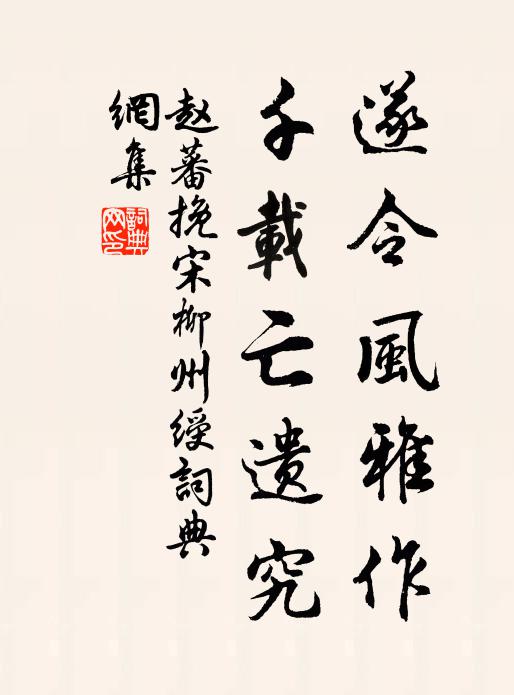 遂令風雅作
千載亡遺究
赵蕃挽宋柳州綬詞典
網集
詞典網印